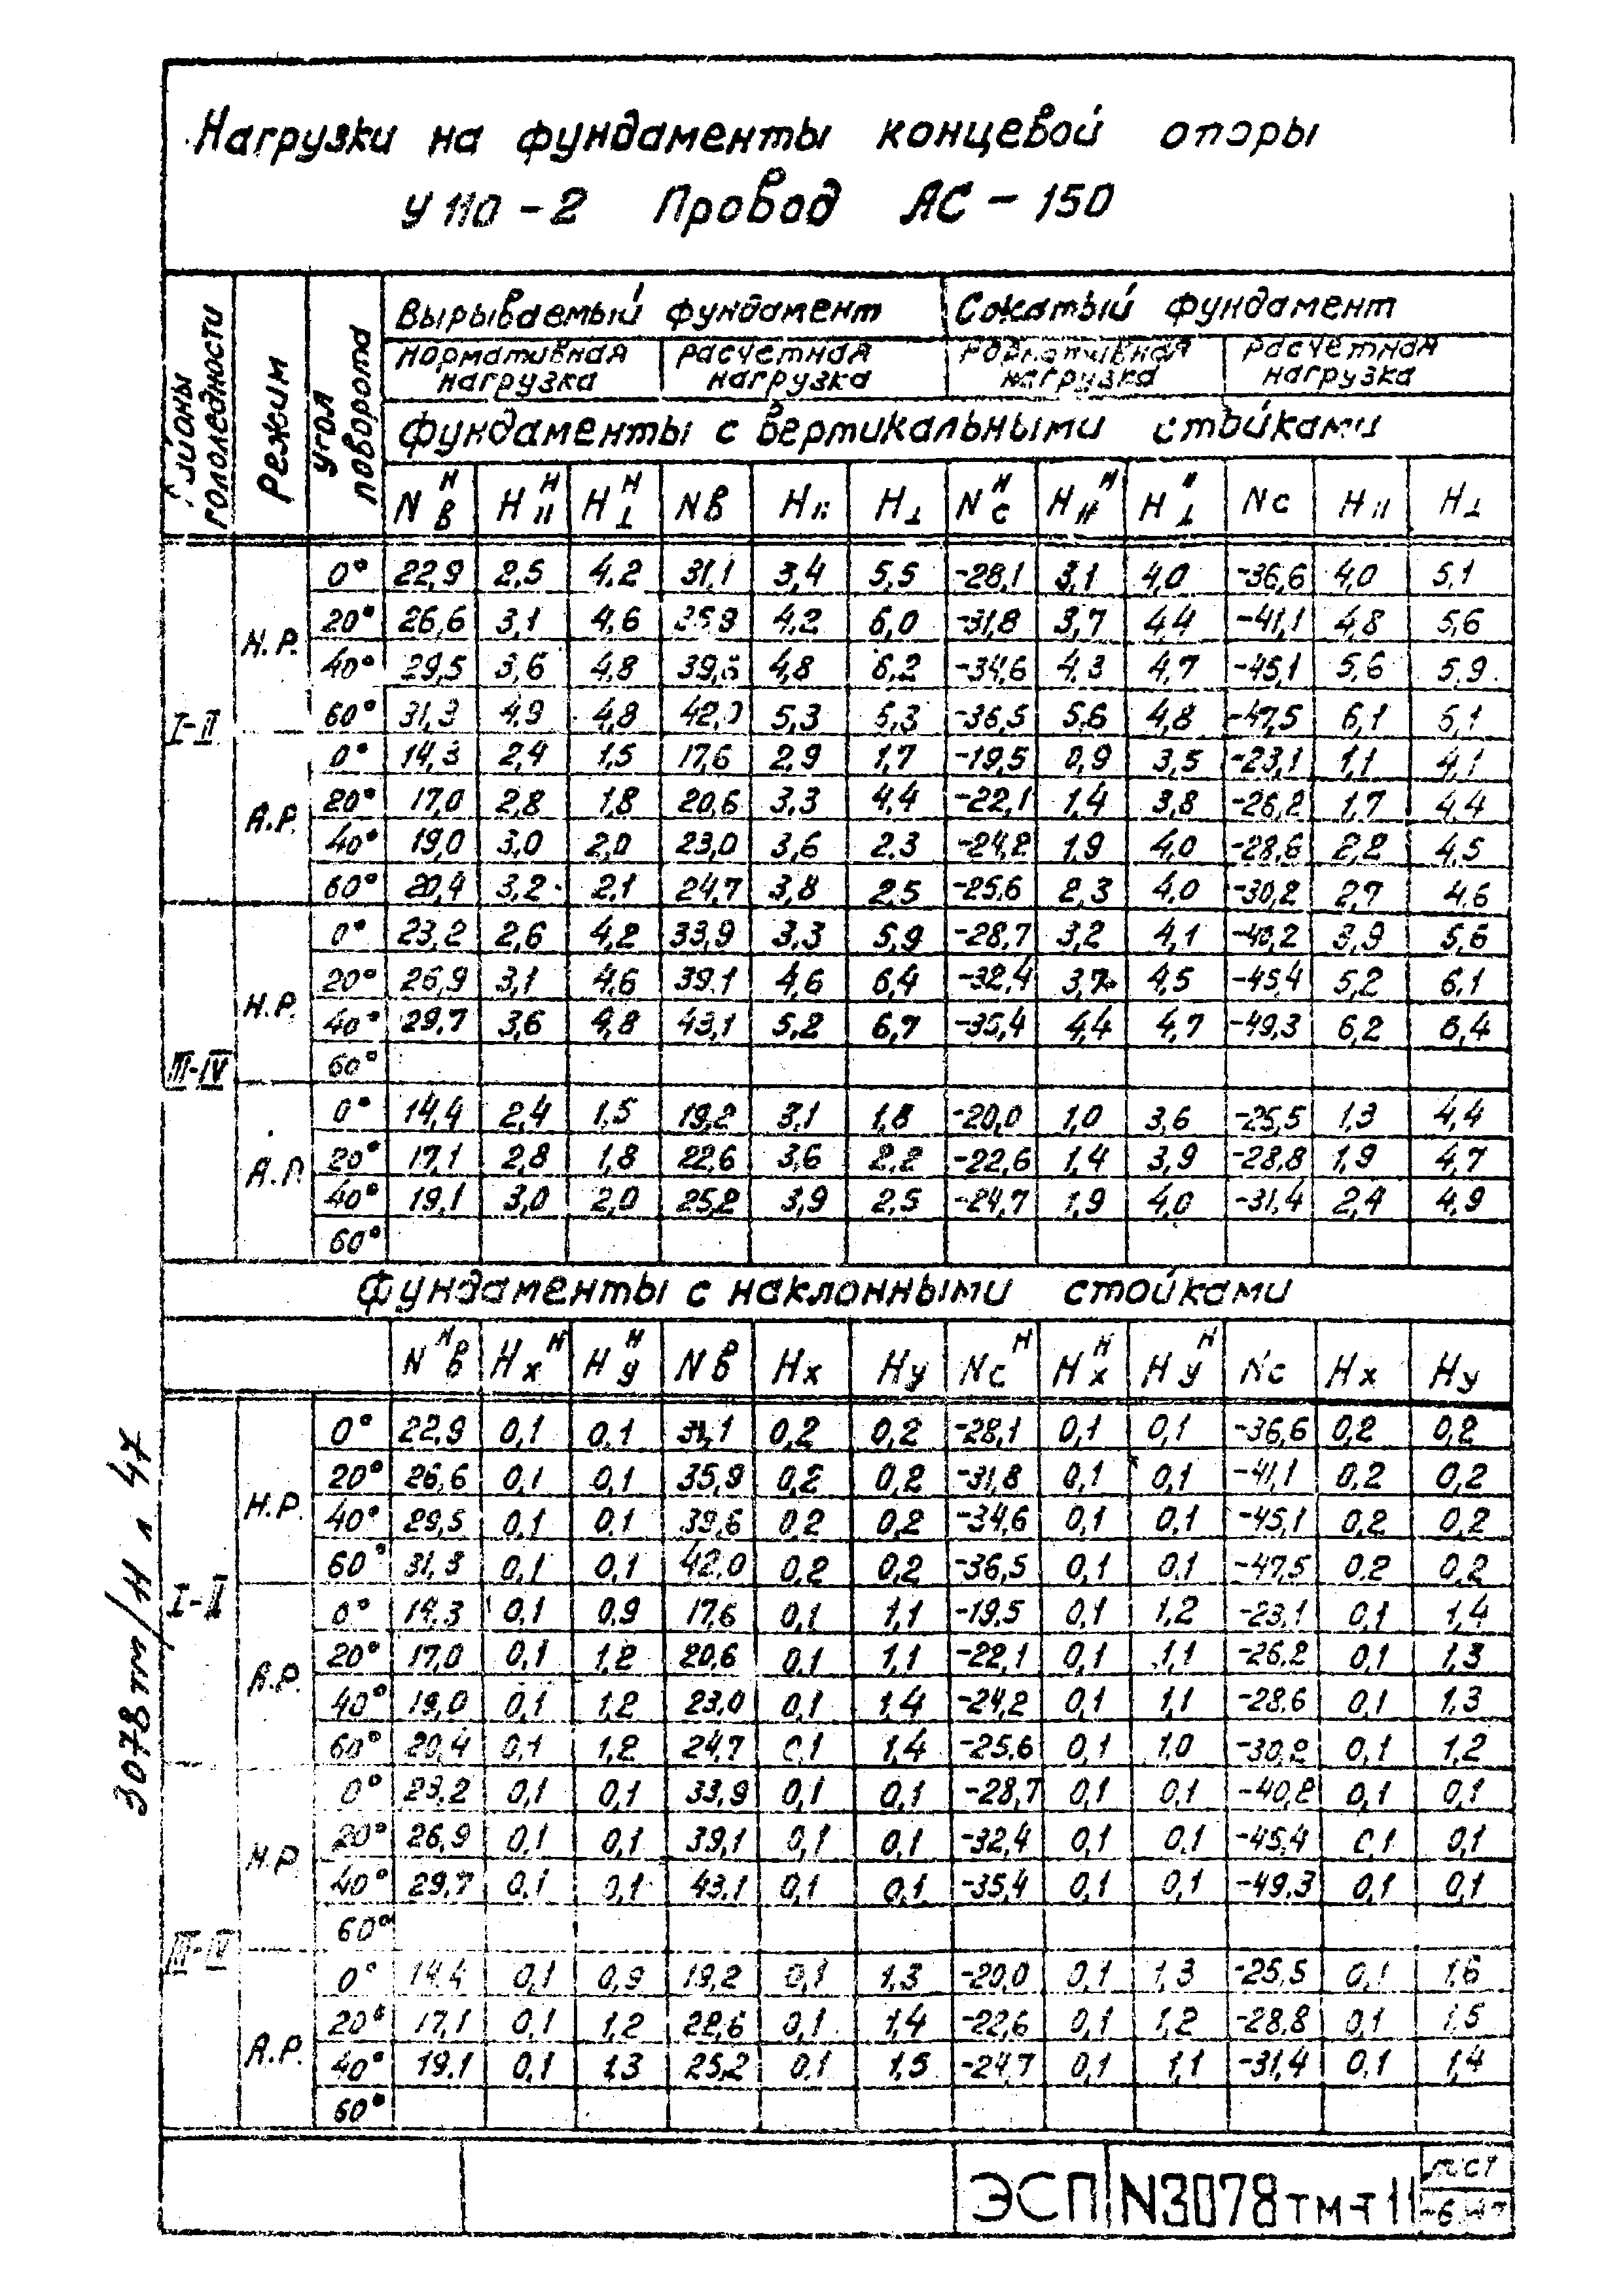 Нагрузки на фундаменты концевой опоры
У110-2 Провод АС-150
Районы гололедности Режим Угол поворота Вырываемый фундамент Сжатый фундамент
Нормативная нагрузка Расчетная нагрузка Нормативная нагрузка Расчетная нагрузка
Фундаменты с вертикальными стойками
Nвᴴ H||ᴴ H⊥ᴴ Nв H|| H⊥ Ncᴴ H||ᴴ H⊥ᴴ Nc H|| H⊥
I-II Н.Р. 0° 22,9 2,5 4,2 31,1 3,4 5,5 -28,1 3,1 4,0 -36,6 4,0 5,1
20° 26,6 3,1 4,6 35,9 4,2 6,0 -31,8 3,7 4,4 -41,1 4,8 5,6
40° 29,5 3,6 4,8 39,6 4,8 6,2 -34,6 4,3 4,7 -45,1 5,6 5,9
60° 31,3 4,9 4,8 42,0 5,3 6,3 -36,5 5,6 4,8 -47,5 6,1 6,1
А.Р. 0° 14,3 2,4 1,5 17,6 2,9 1,7 -19,5 0,9 3,5 -23,1 1,1 4,1
20° 17,0 2,8 1,8 20,6 3,3 4,4 -22,1 1,4 3,8 -26,2 1,7 4,4
40° 19,0 3,0 2,0 23,0 3,6 2.3 -24,2 1,9 4,0 -28,6 2,2 4,5
60° 20,4 3,2 2,1 24,7 3,8 2,5 -25,6 2,3 4,0 -30,2 2,7 4,6
III-IV Н.Р. 0° 23,2 2,6 4,2 33,9 3,3 5,9 -28,7 3,2 4,1 -40,2 3,9 5,6
20° 26,9 3,1 4,6 39,1 4,6 6,4 -32,4 3,7 4,5 -45,4 5,2 6,1
40° 29,7 3,6 4,8 43,1 5,2 6,7 -35,4 4,4 4,7 -49,3 6,2 6,4
60°
А.Р. 0° 14,4 2,4 1,5 19,2 3,1 1,8 -20,0 1,0 3,6 -25,5 1,3 4,4
20° 17,1 2,8 1,8 22,6 3,6 2,2 -22,6 1,4 3,9 -28,8 1,9 4,7
40° 19,1 3,0 2,0 25,2 3,9 2,5 -24,7 1,9 4,0 -31,4 2,4 4,9
60°
Фундаменты с наклонными стойками
Nвᴴ Hxᴴ Hyᴴ Nв Hx Hy Ncᴴ Hxᴴ Hyᴴ Nc Hx Hy
I-II Н.Р. 0° 22,9 0,1 0,1 31,1 0,2 0,2 -28,1 0,1 0,1 -36,6 0,2 0,2
20° 26,6 0,1 0,1 35,9 0,2 0,2 -31,8 0,1 0,1 -41,1 0,2 0,2
40° 29,5 0,1 0,1 39,6 0,2 0,2 -34,6 0,1 0,1 -45,1 0,2 0,2
60° 31,3 0,1 0,1 42,0 0,2 0,2 -36,5 0,1 0,1 -47,5 0,2 0,2
А.Р. 0° 14,3 0,1 0,9 17,6 0,1 1,1 -19,5 0,1 1,2 -23,1 0,1 1,4
20° 17,0 0,1 1,2 20,6 0,1 1,1 -22,1 0,1 1,1 -26,2 0,1 1,3
40° 19,0 0,1 1,2 23,0 0,1 1,4 -24,2 0,1 1,1 -28,6 0,1 1,3
60° 20,4 0,1 1,2 24,7 0,1 1,4 -25,6 0,1 1,0 -30,2 0,1 1,2
III-IV Н.Р. 0° 23,2 0,1 0,1 33,9 0,1 0,1 -28,7 0,1 0,1 -40,2 0,1 0,1
20° 26,9 0,1 0,1 39,1 0,1 0,1 -32,4 0,1 0,1 -45,4 0,1 0,1
40° 29,7 0,1 0,1 43,1 0,1 0,1 -35,4 0,1 0,1 -49,3 0,1 0,1
60°
А.Р. 0° 14,4 0,1 0,9 19,2 0,1 1,3 -20,0 0,1 1,3 -25,5 0,1 1,6
20° 17,1 0,1 1,2 22,6 0,1 1,4 -22,6 0,1 1,2 -28,8 0,1 1,5
40° 19,1 0,1 1,3 25,2 0,1 1,5 -24,7 0,1 1,1 -31,4 0,1 1,4
60°
3078тм/11 л 47
ЭСП N3078тм-т11 лист